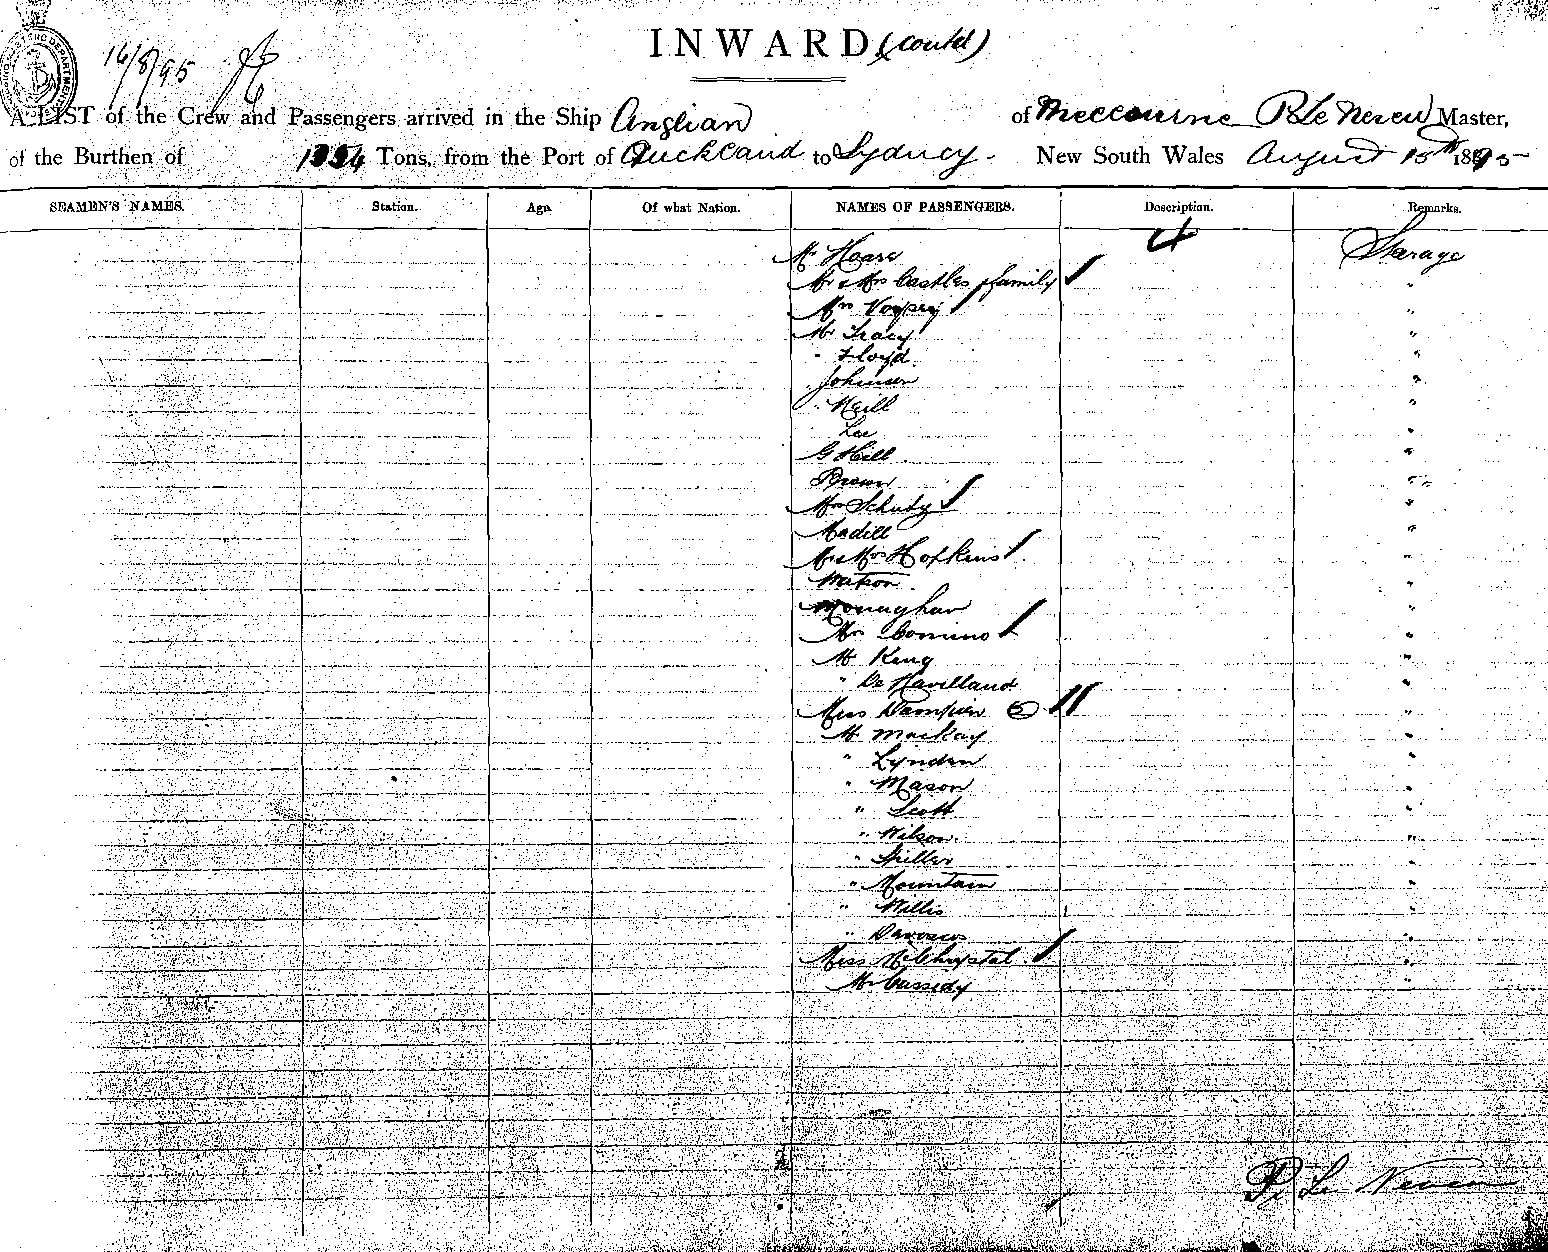 INWARD (contd)
16/8/95
A LIST of the Crew and Passengers arrived in the Ship Anglian of Melbourne P Le Neveu Master,
of the Burthen of Tons, from the Port of Auckland to Sydney. New South Wales August 15th 1895
SEAMEN'S NAMES. Station. Age. Of what Nation. NAMES OF PASSENGERS. Description. Remarks.
Mr Hoare Starage
Mr & Mrs Castles family "
Mrs "
Mr Tracy "
" Floyd "
" Johnson "
" Neill "
Lee "
G Hill "
Brown "
Mrs Schuby "
Madill "
Mr & Mrs Hopkins "
Watson "
Monaghan "
Mrs Comino "
Mr King "
" De Havilland "
Miss Dampier "
Mr Mackay "
" Lynden "
" Mason "
" Scott "
" Wilson "
" Miller "
" Mountain "
" Willis "
" "
Miss "
Mr Cassidy "
P. Le Neveu